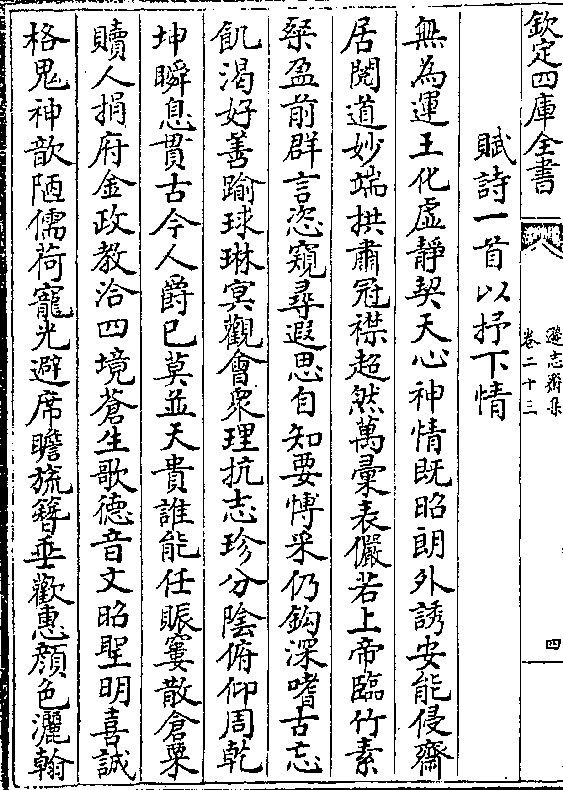 欽定四庫全書
遜志齋集
卷二十三
四
賦詩一首以抒下情
無為運王化虛靜契天心神情既昭朗外誘安能侵齋
居閱道妙端拱肅冠襟超然萬彚表儼若上帝臨竹素
椉盈前群言恣窺尋遐思自知要博采仍鈎深嗜古忘
飢渴好善踰球琳㝠觀㑹衆理抗志珍分陰俯仰周乾
坤瞬息貫古今人爵已莫並天貴誰能任賑窶散倉粟
贖人捐府金政教洽四境蒼生歌德音文昭聖明喜誠
格鬼神歆陋儒荷寵光避席瞻旒簪垂歡惠顔色灑翰